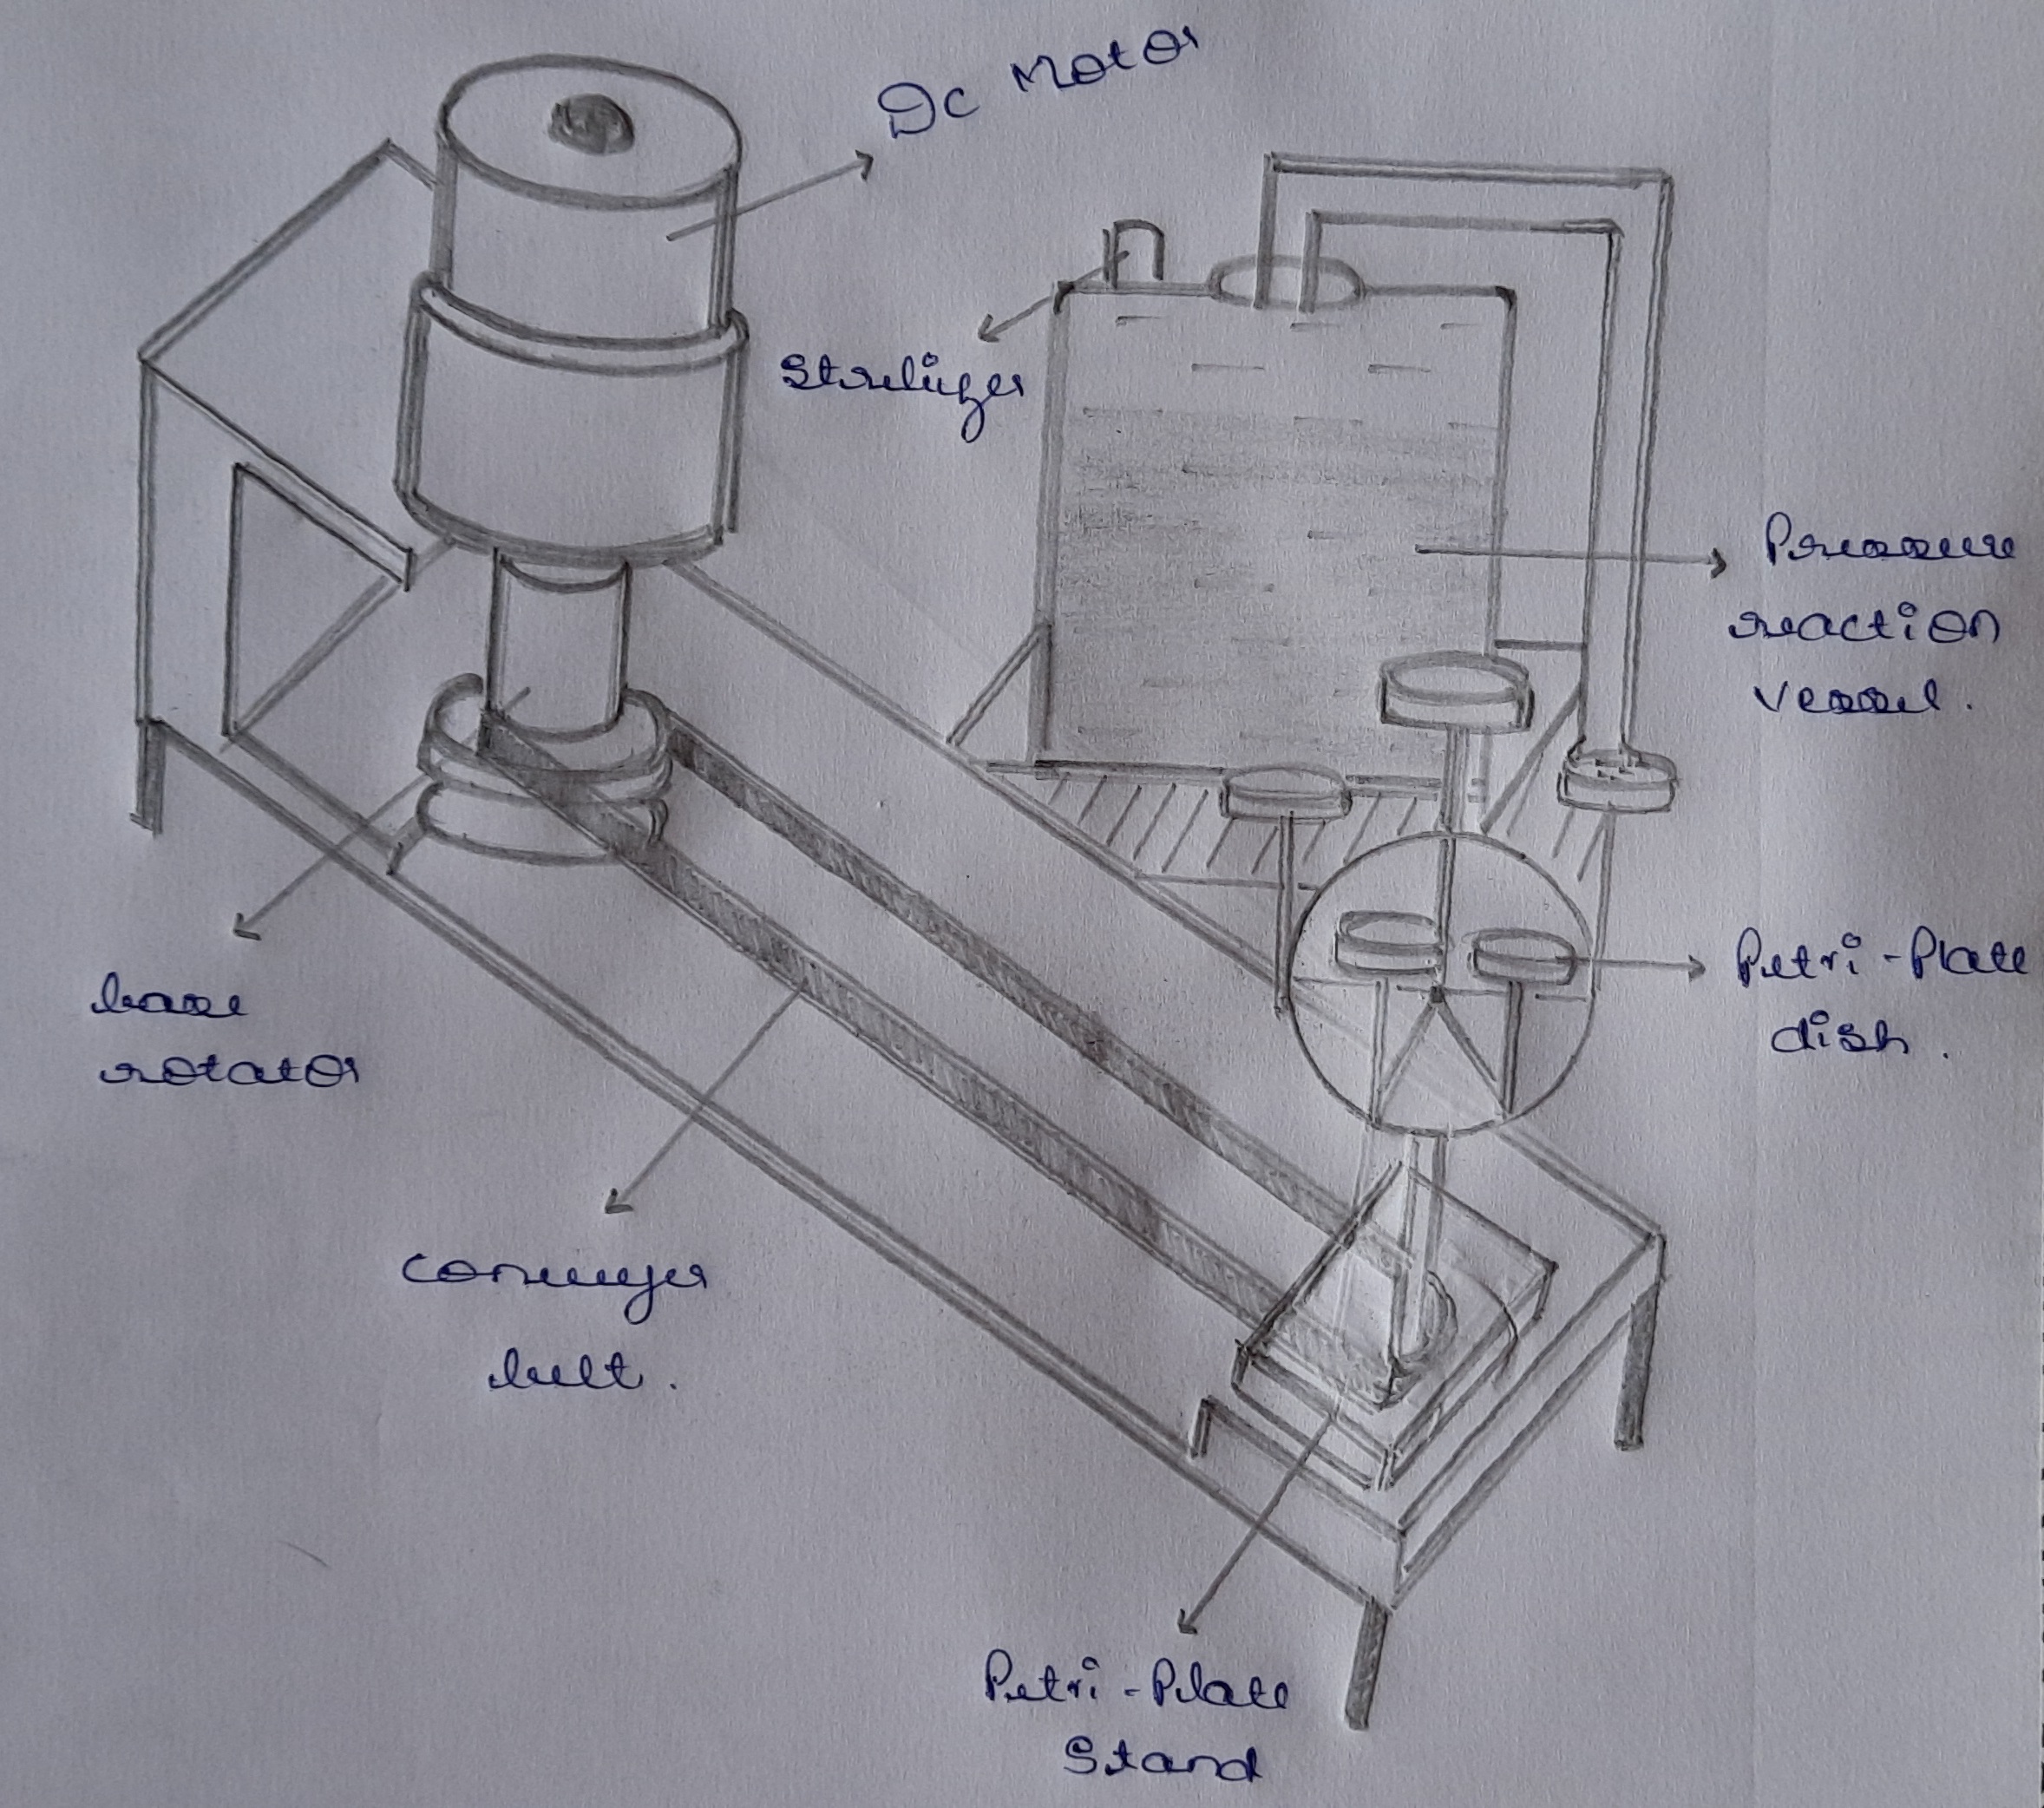 Dc Motor
Sterlizer
Pressure
reaction
vessel.
Petri-Plate
dish.
base
rotator
conveyer
belt.
Petri-Plate
Stand